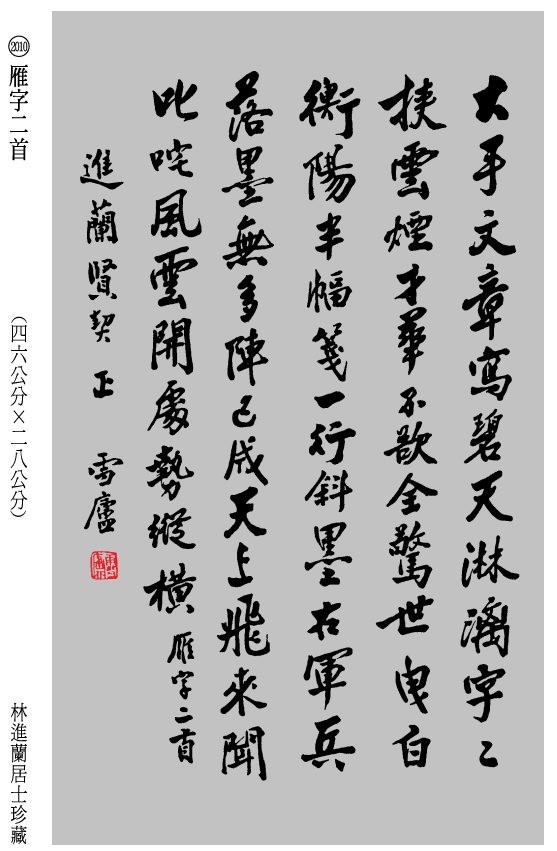 大手文章寫碧天淋漓字〻
挾雲煙才華不欲全驚世曳白
衡陽半幅箋一行斜墨右軍兵
落墨無多陣已成天上飛來聞
叱咤風雲開處勢縱橫 雁字二首
進蘭賢契 正 雪廬
2010 雁字二首 (四六公分×二八公分) 林進蘭居士珍藏